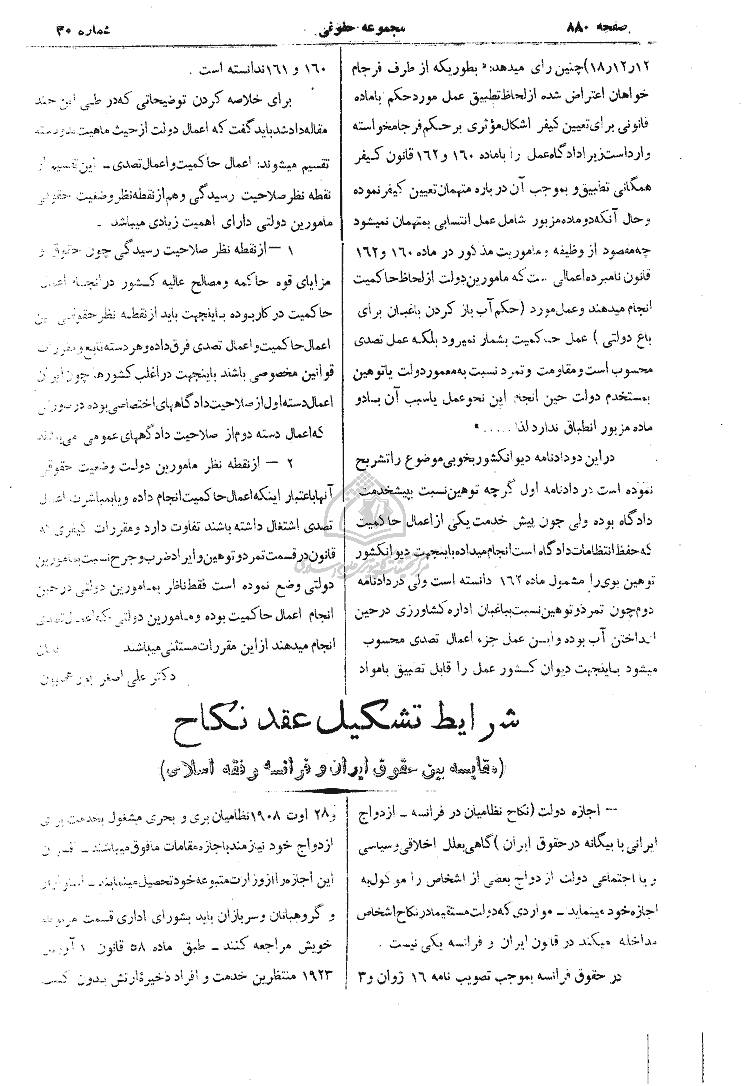 صفحه ۸۸۰
مجموعه حقوقی
شماره ۳۰
۱۲ر۱۲ر۱۸) چنین رای میدهد: « بطوریکه از طرف فرجام
خواهان اعتراض شده از لحاظ تطبیق عمل مورد حکم باماده
قانونی برای تعیین کیفر اشکال مؤثری بر حکم فرجامخواسته
وارداست زیرا دادگاه عمل را باماده ۱۶۰ و ۱۶۲ قانون کیفر
همگانی تطبیق و بموجب آن درباره متهمان تعیین کیفر نموده
و حال آنکه دو ماده مزبور شامل عمل انتسابی بمتهمان نمیشود
چه مقصود از وظیفه و ماموریت مذکور در ماده ۱۶۰ و ۱۶۲
قانون نامبرده اعمالی است که مامورین دولت از لحاظ حاکمیت
انجام میدهند و عمل مورد (حکم آب باز کردن باغبان برای
باغ دولتی ) عمل حاکمیت بشمار نمیرود بلکه عمل تصدی
محسوب است و مقاومت و تمرد نسبت به مامور دولت یا توهین
بمستخدم دولت حین انجام این نحو عمل یا سبب آن با دو
ماده مزبور انطباق ندارد لذا ..... »
در این دو دادنامه دیوانکشور بخوبی موضوع را تشریح
نموده است در دادنامه اول گرچه توهین نسبت بپیشخدمت
دادگاه بوده ولی چون پیش خدمت یکی از اعمال حاکمیت
که حفظ انتظامات دادگاه است انجام میداده باینجهت دیوانکشور
توهین بوی را مشمول ماده ۱۶۲ دانسته است ولی در دادنامه
دوم چون تمرد و توهین نسبت بباغبان اداره کشاورزی در حین
انداختن آب بوده و این عمل جزء اعمال تصدی محسوب
میشود باینجهت دیوان کشور عمل را قابل تطبیق بامواد
۱۶۰ و ۱۶۱ ندانسته است .
برای خلاصه کردن توضیحاتی که در طی این چند
مقاله داده شد باید گفت که اعمال دولت از حیث ماهیت بدو دسته
تقسیم میشوند: اعمال حاکمیت و اعمال تصدی ـ این تقسیم از
نقطه نظر صلاحیت رسیدگی و هم از نقطه نظر وضعیت حقوقی
مامورین دولتی دارای اهمیت زیادی میباشد .
۱ – از نقطه نظر صلاحیت رسیدگی چون حقوق و
مزایای قوه حاکمه و مصالح عالیه کشور در انجام اعمال
حاکمیت در کار بوده باینجهت باید از نقطه نظر حقوقی بین
اعمال حاکمیت و اعمال تصدی فرق داده و هر دسته تابع مقررات
قوانین مخصوصی باشند باینجهت در اغلب کشورها چون ایران
اعمال دسته اول از صلاحیت دادگاههای اختصاصی بوده در صورتی
که اعمال دسته دوم از صلاحیت دادگاههای عمومی میباشد
۲ – از نقطه نظر مامورین دولت وضعیت حقوقی
آنها باعتبار اینکه اعمال حاکمیت انجام داده و یا بمباشرت اعمال
تصدی اشتغال داشته باشند تفاوت دارد و مقررات کیفری که
قانون در قسمت تمرد و توهین و ایراد ضرب و جرح نسبت بمامورین
دولتی وضع نموده است فقط ناظر بمامورین دولتی در حین
انجام اعمال حاکمیت بوده و مامورین دولتی که اعمال تصدی
انجام میدهند از این مقررات مستثنی میباشند
دکتر علی اصغر
شرایط تشکیل عقد نکاح
(مقایسه بین حقوق ایران و فرانسه و فقه اسلامی)
— اجازه دولت (نکاح نظامیان در فرانسه ـ ازدواج
ایرانی با بیگانه در حقوق ایران ) گاهی بعلل اخلاقی و سیاسی
و یا اجتماعی دولت ازدواج بعضی از اشخاص را موکول به
اجازه خود مینماید ـ مواردی که دولت مستقیما در نکاح اشخاص
مداخله میکند در قانون ایران و فرانسه یکی نیست .
در حقوق فرانسه بموجب تصویب نامه ۱۶ ژوان و ۳
و ۲۸ اوت ۱۹۰۸ نظامیان بری و بحری مشغول بخدمت برای
ازدواج خود نیازمند باجازه مقامات مافوق میباشند ـ افسران
این اجازه را از وزارت متبوعه خود تحصیل مینمایند ـ استواران
و گروهبانان و سربازان باید بشورای اداری قسمت مربوطه
خویش مراجعه کنند ـ طبق ماده ۵۸ قانون ۱ آوریل
۱۹۲۳ منتظرین خدمت و افراد ذخیره ارتش بدون کسب